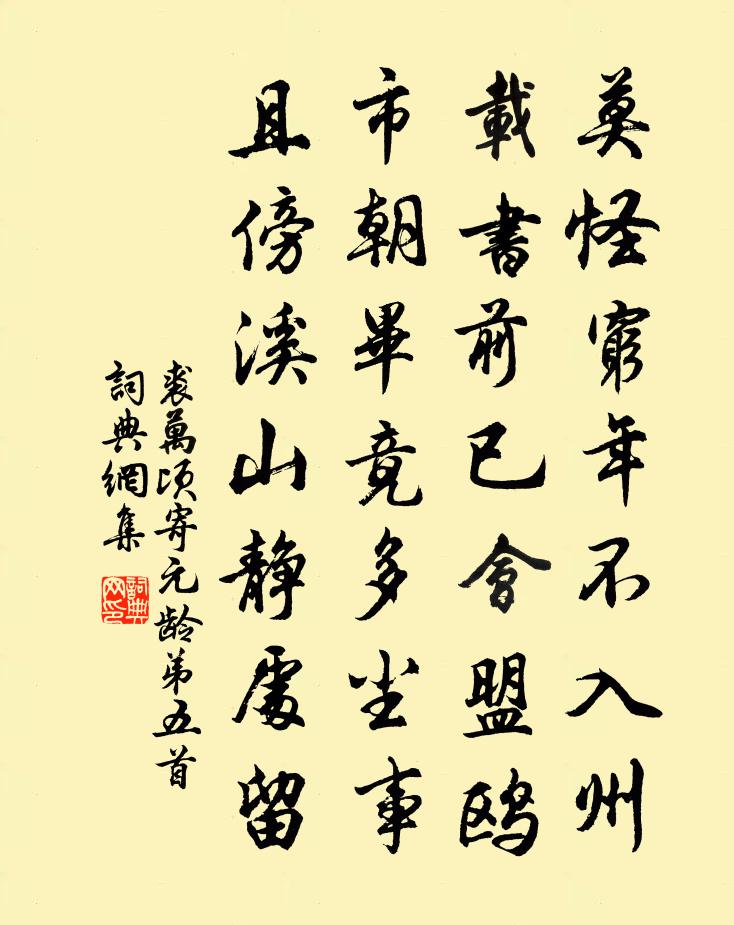 莫怪窮年不入州
載書前已會盟鷗
市朝畢竟多塵事
且傍溪山靜處留
裘萬頃寄元齡第五首
詞典網集
詞典網印